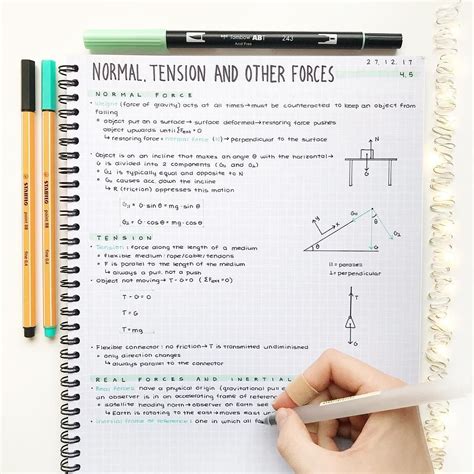 Tombow ABT
243
27.12.17
4,5
NORMAL, TENSION AND OTHER FORCES
NORMAL FORCE
• Weight (force of gravity) acts at all times → must be counteracted to keep an object from
falling
• object put on a surface → surface deformed → restoring force pushes
object upwards until ΣFext = 0
↳ restoring force: normal force → perpendicular to the surface
• Object is on an incline that makes an angle θ with the horizontal →
G is divided into 2 components
• is typically equal and opposite to N
• causes acc down the incline
↳ R (friction) opposes this motion
= G · sin θ = mg · sin θ
= G · cos θ = mg · cos θ
TENSION
• Tension: force along the length of a medium
• flexible medium: rope/cable/tendons
• F is parallel to the length of the medium
↳ always a pull, not a push
• Object not moving → T - G = 0 (ΣFext = 0)
T - G = 0
T = G
T = mg
• Flexible connector: no friction → T is transmitted undiminished
• only direction changes
↳ always parallel to the connector
REAL FORCES AND INERTIAL
Real forces: have a physical origin (gravitational pull
an observer is in an accelerating frame of reference
• satellite heading north → observer on Earth sees
↳ Earth is rotating to the east → moves
• Inertial frame of reference: one in which all
N
G
y
x
θ
G
θ
T
G
∥ = parallel
⊥ = perpendicular
STABILO
point 88
fine 0,4
STABILO
point 88
fine 0,4